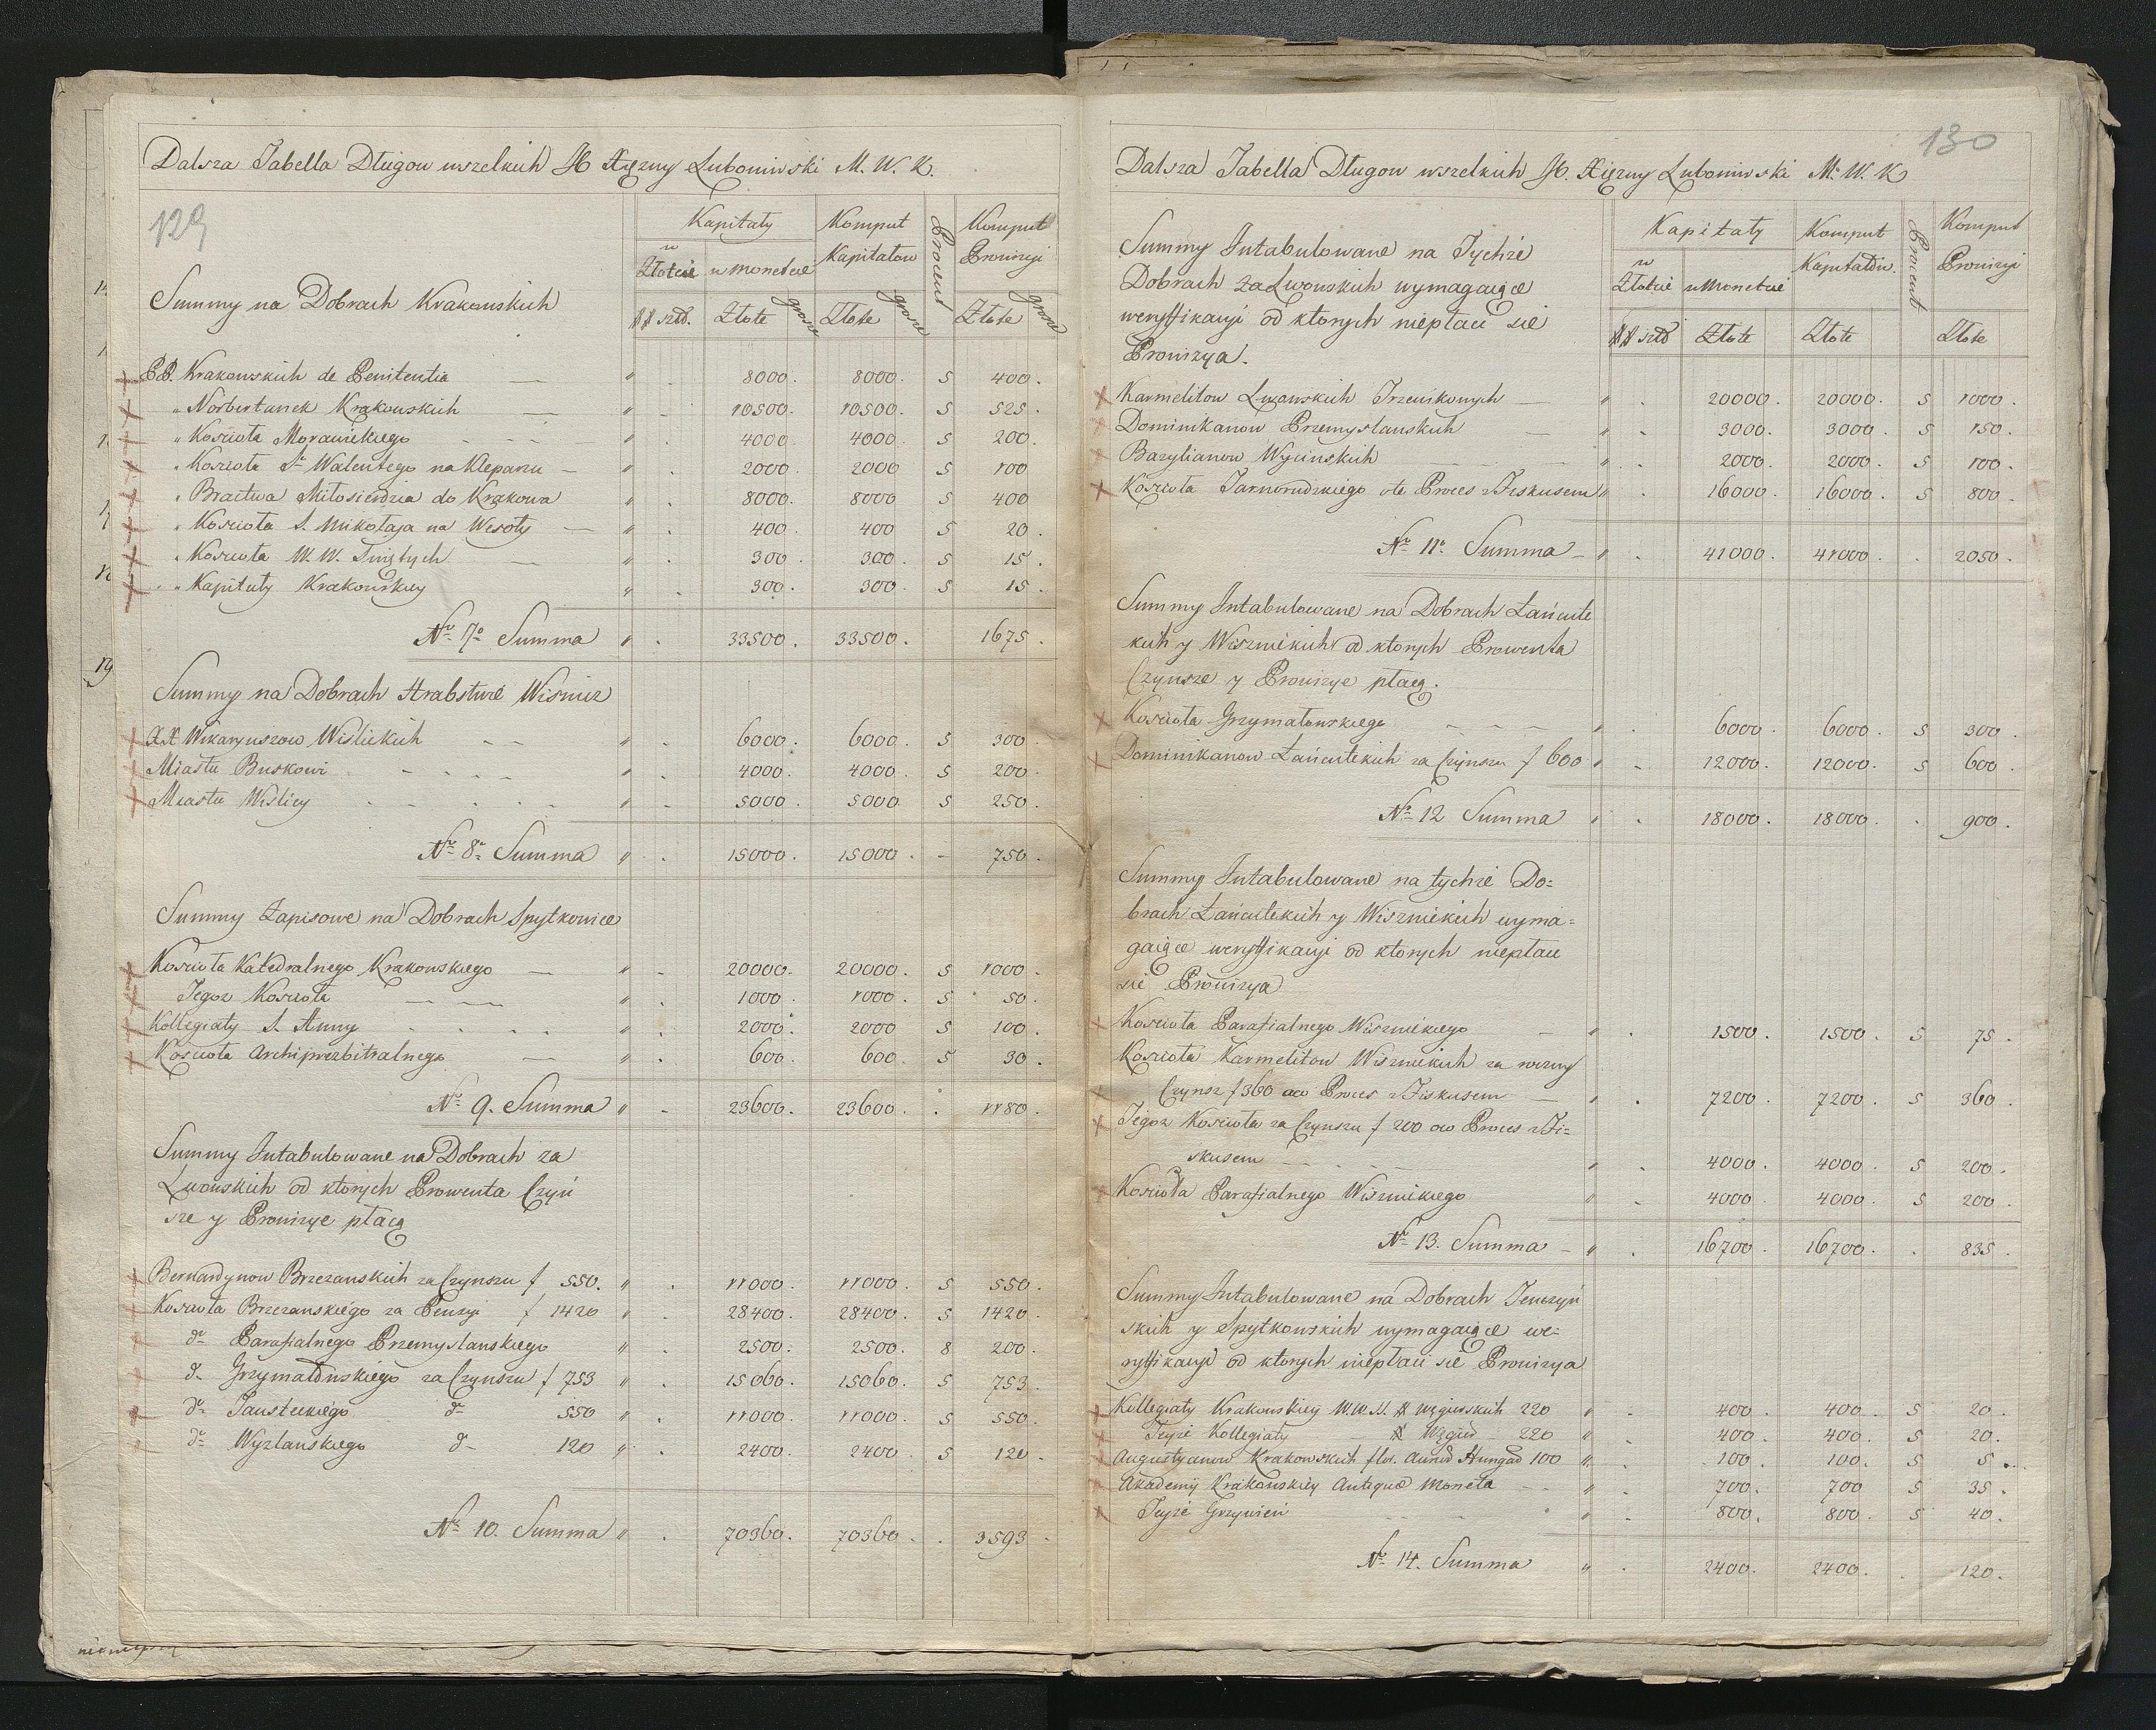 Dalsza Tabella Długow wszelkich JO Xiężny Lubomirski M. W. K.
129
Kapitały Komput Procent Komput
w Złotcie w Monetcie Kapitałow Prowizyi
Summy na Dobrach Krakowskich
## szt. Złote grosze Złote grosze Złote grosze
PP. Krakowskich de Penitentia — " . 8000. 8000. 5 400.
" Norbertanek Krakowskich — " - 10500. 10500. 5 525.
" Kościoła Morawickiego - - - " . 4000. 4000. 5 200.
" Kościoła Sº Walentego na Kleparzu — " . 2000. 2000 5 100
" Bractwa Miłosierdzia do Krakowa " . 8000. 8000 5 400
" Kościoła S. Mikołaja na Wesoły — " . 400. 400 5 20.
" Kościoła W. W. Swiętych — " . 300. 300. 5 15.
" Kapituły Krakowskiey " . 300. 300. 5 15.
Nº 7º Summa " . 33500. 33500. 1675.
Summy na Dobrach Hrabstwie Wisnicz
XX Wikaryuszow Wislickich - - " . 6000. 6000. 5 300.
Miastu Buskowi - - - - " . 4000. 4000. 5 200.
Miastu Wislicy - - - - " . 5000. 5000 5 250.
Nº 8º Summa " . 15000. 15000. - 750.
Summy Zapisowe na Dobrach Spytkowice
Kościoła Katedralnego Krakowskiego — " - 20000. 20000. 5 1000.
Tegoz Kościoła — — " . 1000. 1000. 5 50.
Kollegiaty S. Anny - - - - " . 2000. 2000 5 100.
Kościoła Archiprezbitralnego — " . 600. 600. 5 30.
Nº 9. Summa " - 23600. 23600. . 1180.
Summy Intabulowane na Dobrach za
Lwowskich od ktorych Prowenta Czyn
sze y Prowizye płacą
Bernardynow Brzezanskich za Czynszu f 550. " . 11000. 11000. 5 550.
Kościoła Brzezanskiego za Pensyi f 1420 " . 28400. 28400. 5 1420.
dº Parafialnego Przemyslanskiego " . 2500. 2500. 8 200.
dº Grzymałowskiego za Czynszu f 753 " . 15060. 15060. 5 753.
dº Tausteckiego dº 550 " . 11000. 11000. 5 550.
dº Wyzlanskiego dº 120 " . 2400. 2400. 5 120.
Nº 10. Summa " . 70360. 70360. . 3593
130
Dalsza Tabella Długow wszelkich JO. Xiężny Lubomirski M. W. K
Kapitały Komput Procent Komput
w Złotcie w Monetcie Kapitałow. Prowizyi
## szt Złote Złote Złote
Summy Intabulowane na Tychże
Dobrach zaLwowskich wymagaiące
weryffikacyi od ktorych niepłaci się
Prowizya.
Karmelitow Lwowskich Trzewikowych — " . 20000. 20000. 5 1000.
Dominikanow Przemyslanskich — " . 3000. 3000. 5 150.
Bazylianow Wycinskich " . 2000. 2000. 5 100.
Kościoła Tarnorudzkiego ote Proces z Fiskusem " . 16000. 16000. 5 800.
Nº 11º Summa — " . 41000. 41000. . 2050.
Summy Intabulowane na Dobrach Łańcute
kich y Wisznickich od ktorych Prowenta
Czynsze y Prowizye płacą.
Kościoła Grzymałowskiego - - - " . 6000. 6000. 5 300.
Dominikanow Łańcutekich za Czynszu f 600 " - 12000. 12000. 5 600.
Nº 12 Summa " . 18000. 18000. . 900.
Summy Intabulowane na tychże Do=
brach Łańcutekich y Wisznickich wyma=
gaiące weryffikacyi od ktorych niepłaci
się Prowizya
Kościoła Parafialnego Wisznickiego - " . 1500. 1500. 5 75.
Kościoła Karmelitow Wisznickich za roczny
Czynsz f 360 oco Proces z Fiskusem — " . 7200. 7200. 5 360.
Tegoz Kościoła za Czynszu f 200 oco Proces z Fi=
skusem - - - " . 4000. 4000. 5 200.
Kościoła Parafialnego Wisznickiego " - 4000. 4000. 5 200.
Nº 13. Summa - " . 16700. 16700. . 835.
Summy Intabulowane na Dobrach Tenczyn
skich y Spytkowskich wymagaiące we=
ryffikacyi od ktorych niepłaci się Prowizya
Kollegiaty Krakowskiey W. W. SS. # Węgierskich 220 " - 400. 400. 5 20.
Teyże Kollegiaty - # Węgier - 220 " . 400. 400. 5 20.
Augustyanow Krakowskich flor. Aureo Hungad 100 " . 100. 100. 5 5.
Akademij Krakowskiey Antiquo Moneta - - " . 700. 700 5 35.
Teyże Grzywien " . 800. 800. 5 40.
Nº 14. Summa " . 2400. 2400. . 120.